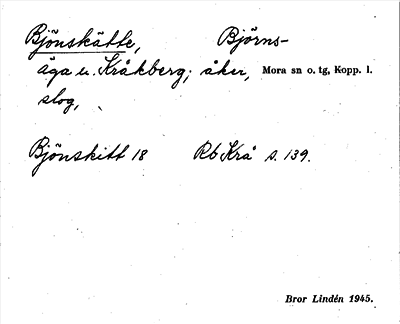 Björnskätte, Björns-
äga u. Kråkberg; åker, Mora sn o. tg, Kopp. l.
slog,
Björnskitt 18 Rb Krå s. 139.
Bror Lindén 1945.